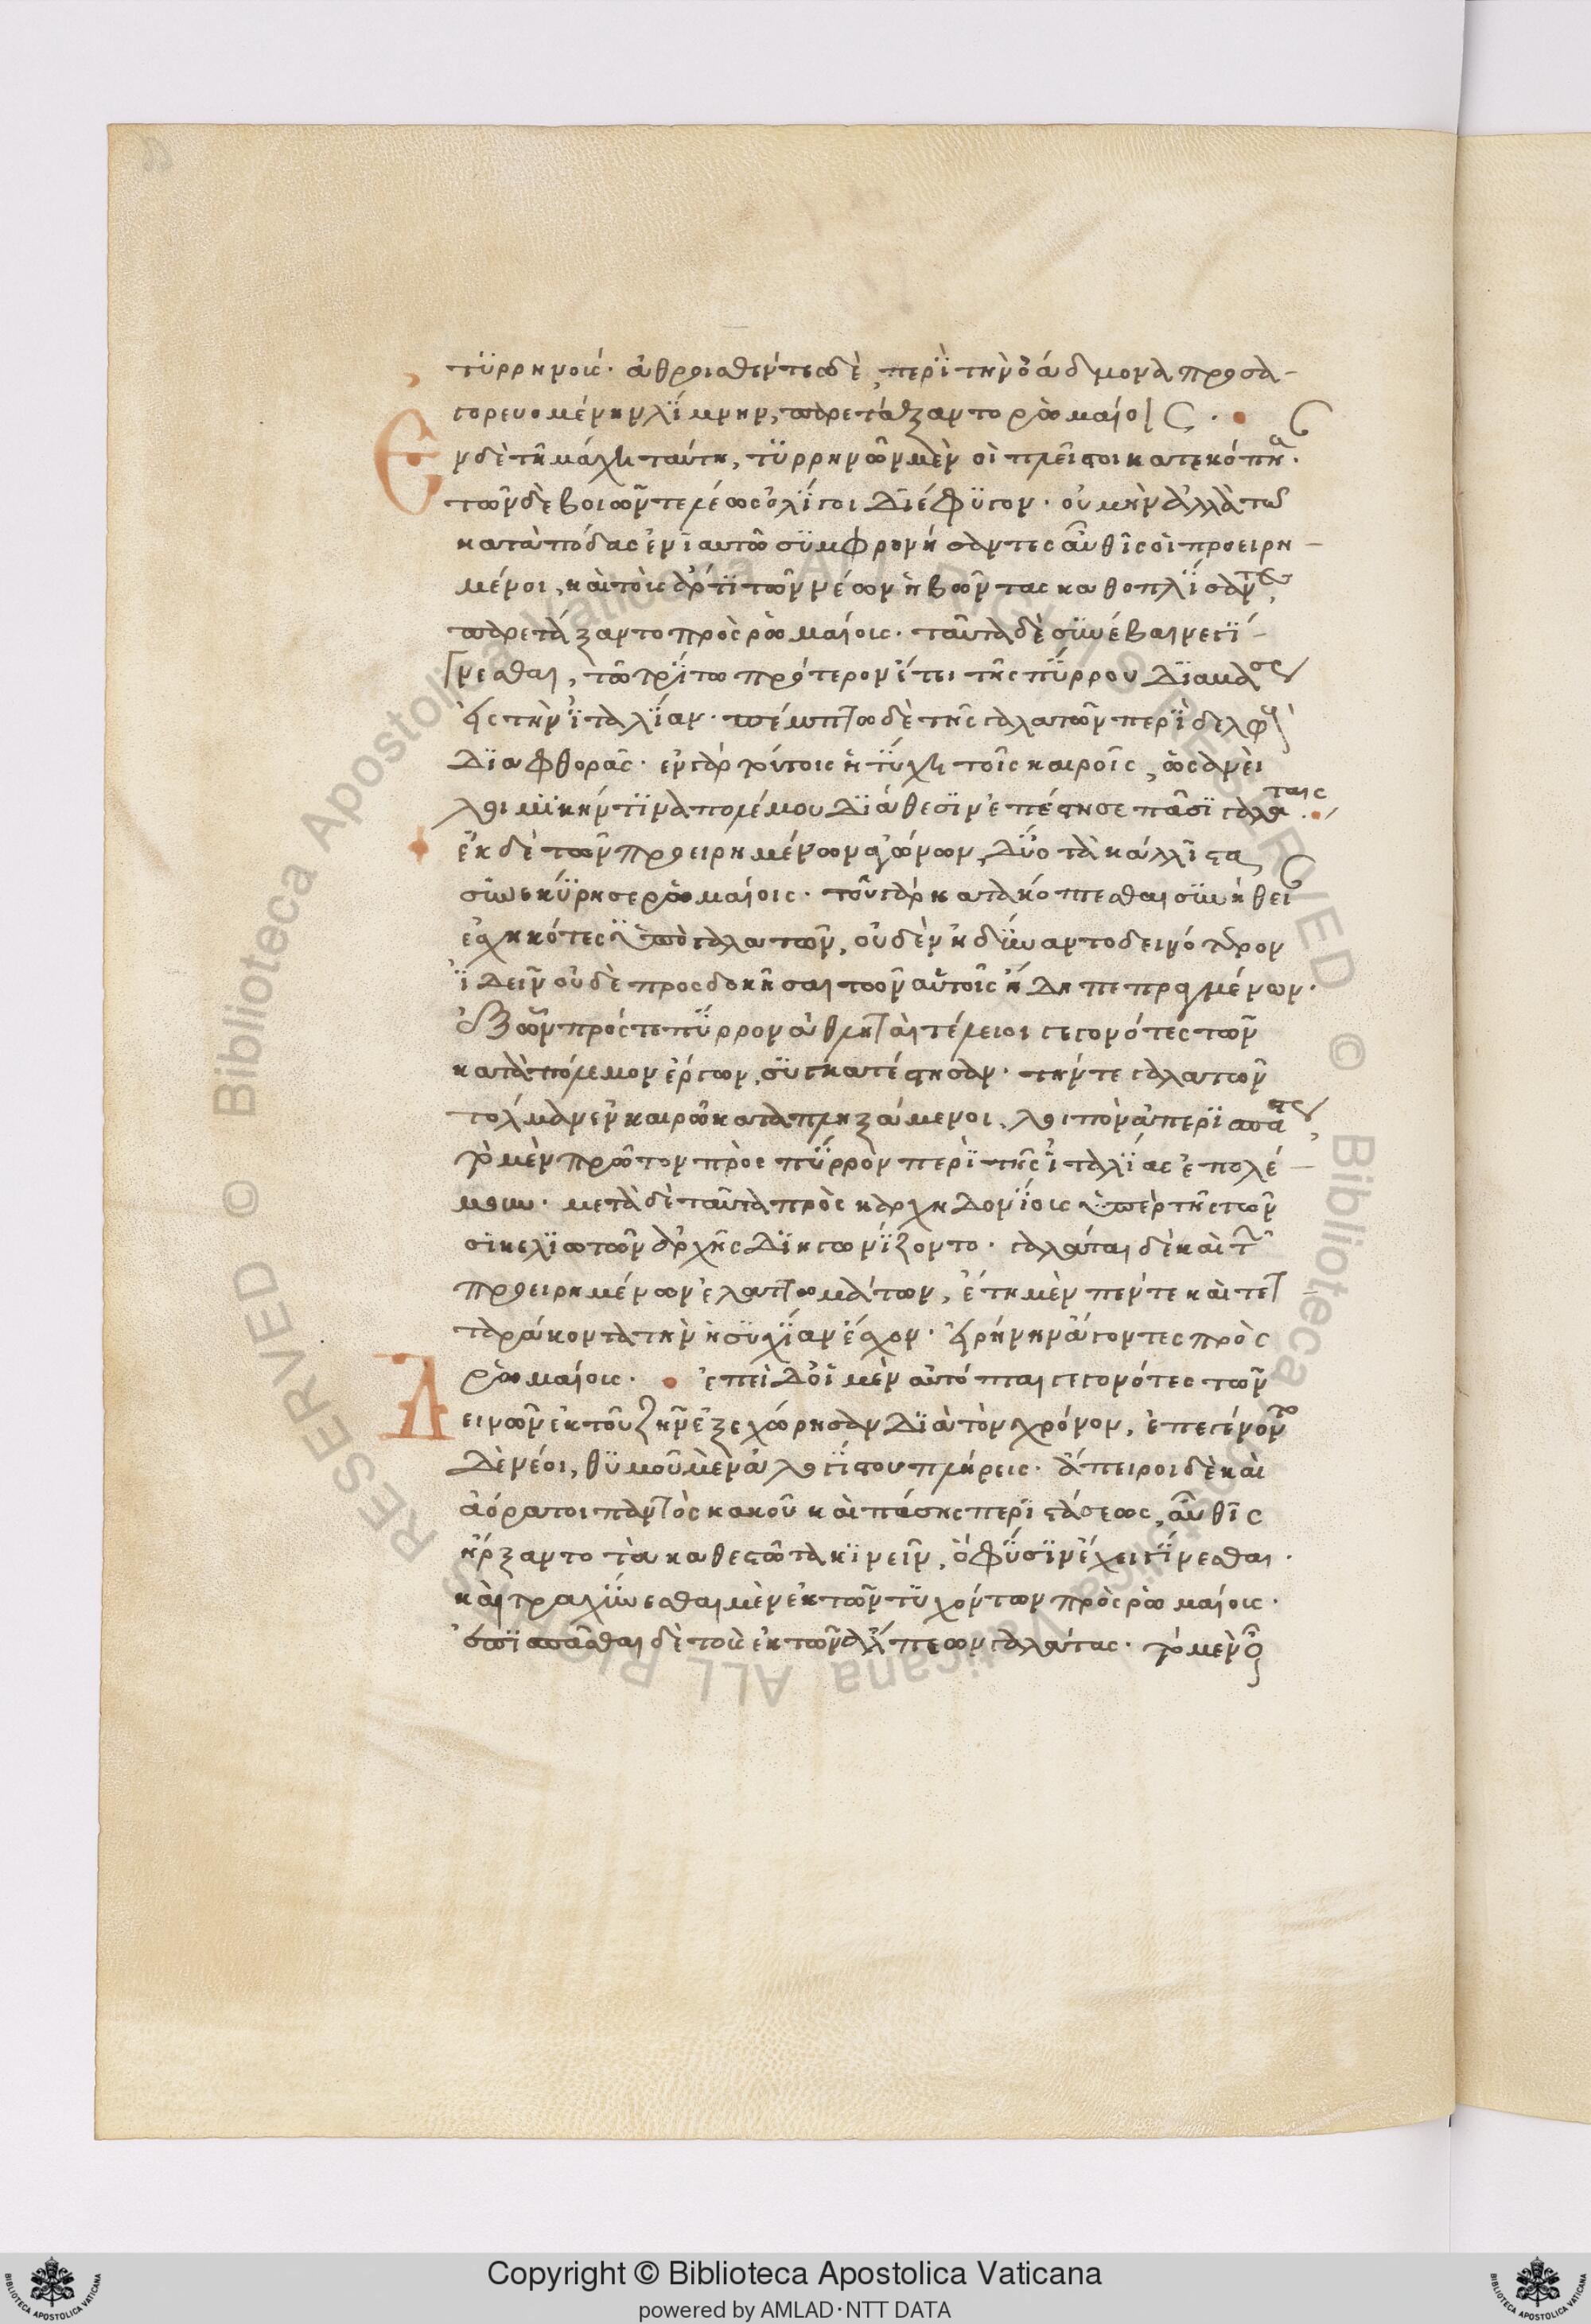 τυρρηνούς· ἀθροισθέντες δὲ, περὶ τὴν ὀάδμονα προσα-
γορευομένην λίμνην, παρετάξαντο ρωμαίοις·
Ἐν δὲ τῆ μάχη ταύτη, τυρρηνῶν μὲν οἱ πλεῖστοι κατεκόπησαν·
τῶν δὲ βοιῶν τελέως ὀλίγοι διέφυγον· οὐ μὴν ἀλλὰ τῶ
κατὰ πόδας ἐνιαυτῶ συμφρονήσαντες αὖθις οἱ προειρη-
μένοι, καὶ τοὺς ἄρτι τῶν νέων ἡβῶντας καθοπλίσαντες,
παρετάξαντο πρὸς ρωμαίους· ταῦτα δὲ συνέβαινε γί-
γνεσθαι, τῶ τρίτω πρότερον ἔτει τῆς πύρρου διαβάσεως
εἰς τὴν ἰταλίαν· πέμπτω δὲ τῆς γαλατῶν περὶ δελφοὺς
διαφθορᾶς· ἐν γὰρ τούτοις ἡ τύχη τοῖς καιροῖς, ὡσανεὶ
λοιμικήν τινα πολέμου διάθεσιν ἐπέστησε πᾶσι γαλάταις·
ἐκ δὲ τῶν προειρημένων ἀγώνων, δύο τὰ κάλλιστα
συνεκύρησε ρωμαίοις· τοῦ γὰρ κατακόπτεσθαι συνήθειαν
ἐσχηκότες ὑπὸ γαλατῶν, οὐδὲν ἠδύναντο δεινότερον
ἰδεῖν οὐδὲ προσδοκῆσαι τῶν αὐτοῖς ἤδη πεπραγμένων·
ἐξ ὧν πρός τε πύρρον ἀθληταὶ τέλειοι γεγονότες τῶν
κατὰ πόλεμον ἔργων, συγκατέστησαν· τήν τε γαλατῶν
τόλμαν ἐν καιρῶ καταπληξάμενοι, λοιπὸν ἀπερισπάστως,
τὸ μὲν πρῶτον πρὸς πύρρον περὶ τῆς ἰταλίας ἐπολέ-
μουν· μετὰ δὲ ταῦτα πρὸς καρχηδονίους ὑπὲρ τῆς τῶν
σικελιωτῶν ἀρχῆς διηγωνίζοντο· γαλάται δὲ καὶ τῶν
προειρημένων ἐλαττωμάτων, ἔτη μὲν πέντε καὶ τετ-
ταράκοντα τὴν ἡσυχίαν ἔσχον· εἰρήνην ἄγοντες πρὸς
ρωμαίους· ἐπεὶ δ' οἱ μὲν αὐτόπται γεγονότες τῶν
Δεινῶν ἐκ τοῦ ζῆν ἐξεχώρησαν διὰ τὸν χρόνον, ἐπεγένοντο
δὲ νέοι, θυμοῦ μὲν ἀλογίστου πλήρεις· ἄπειροι δὲ καὶ
ἀόρατοι παντὸς κακοῦ καὶ πάσης περιστάσεως, αὖθις
ἤρξαντο τὰ καθεστῶτα κινεῖν, ὃ φύσιν ἔχει γίνεσθαι·
καὶ τραχύνεσθαι μὲν ἐκ τῶν τυχόντων πρὸς ρωμαίους·
ἐπισπᾶσθαι δὲ τοὺς ἐκ τῶν ἄλπεων γαλάτας· τὸ μὲν οὖν
Copyright © Biblioteca Apostolica Vaticana
powered by AMLAD·NTT DATA